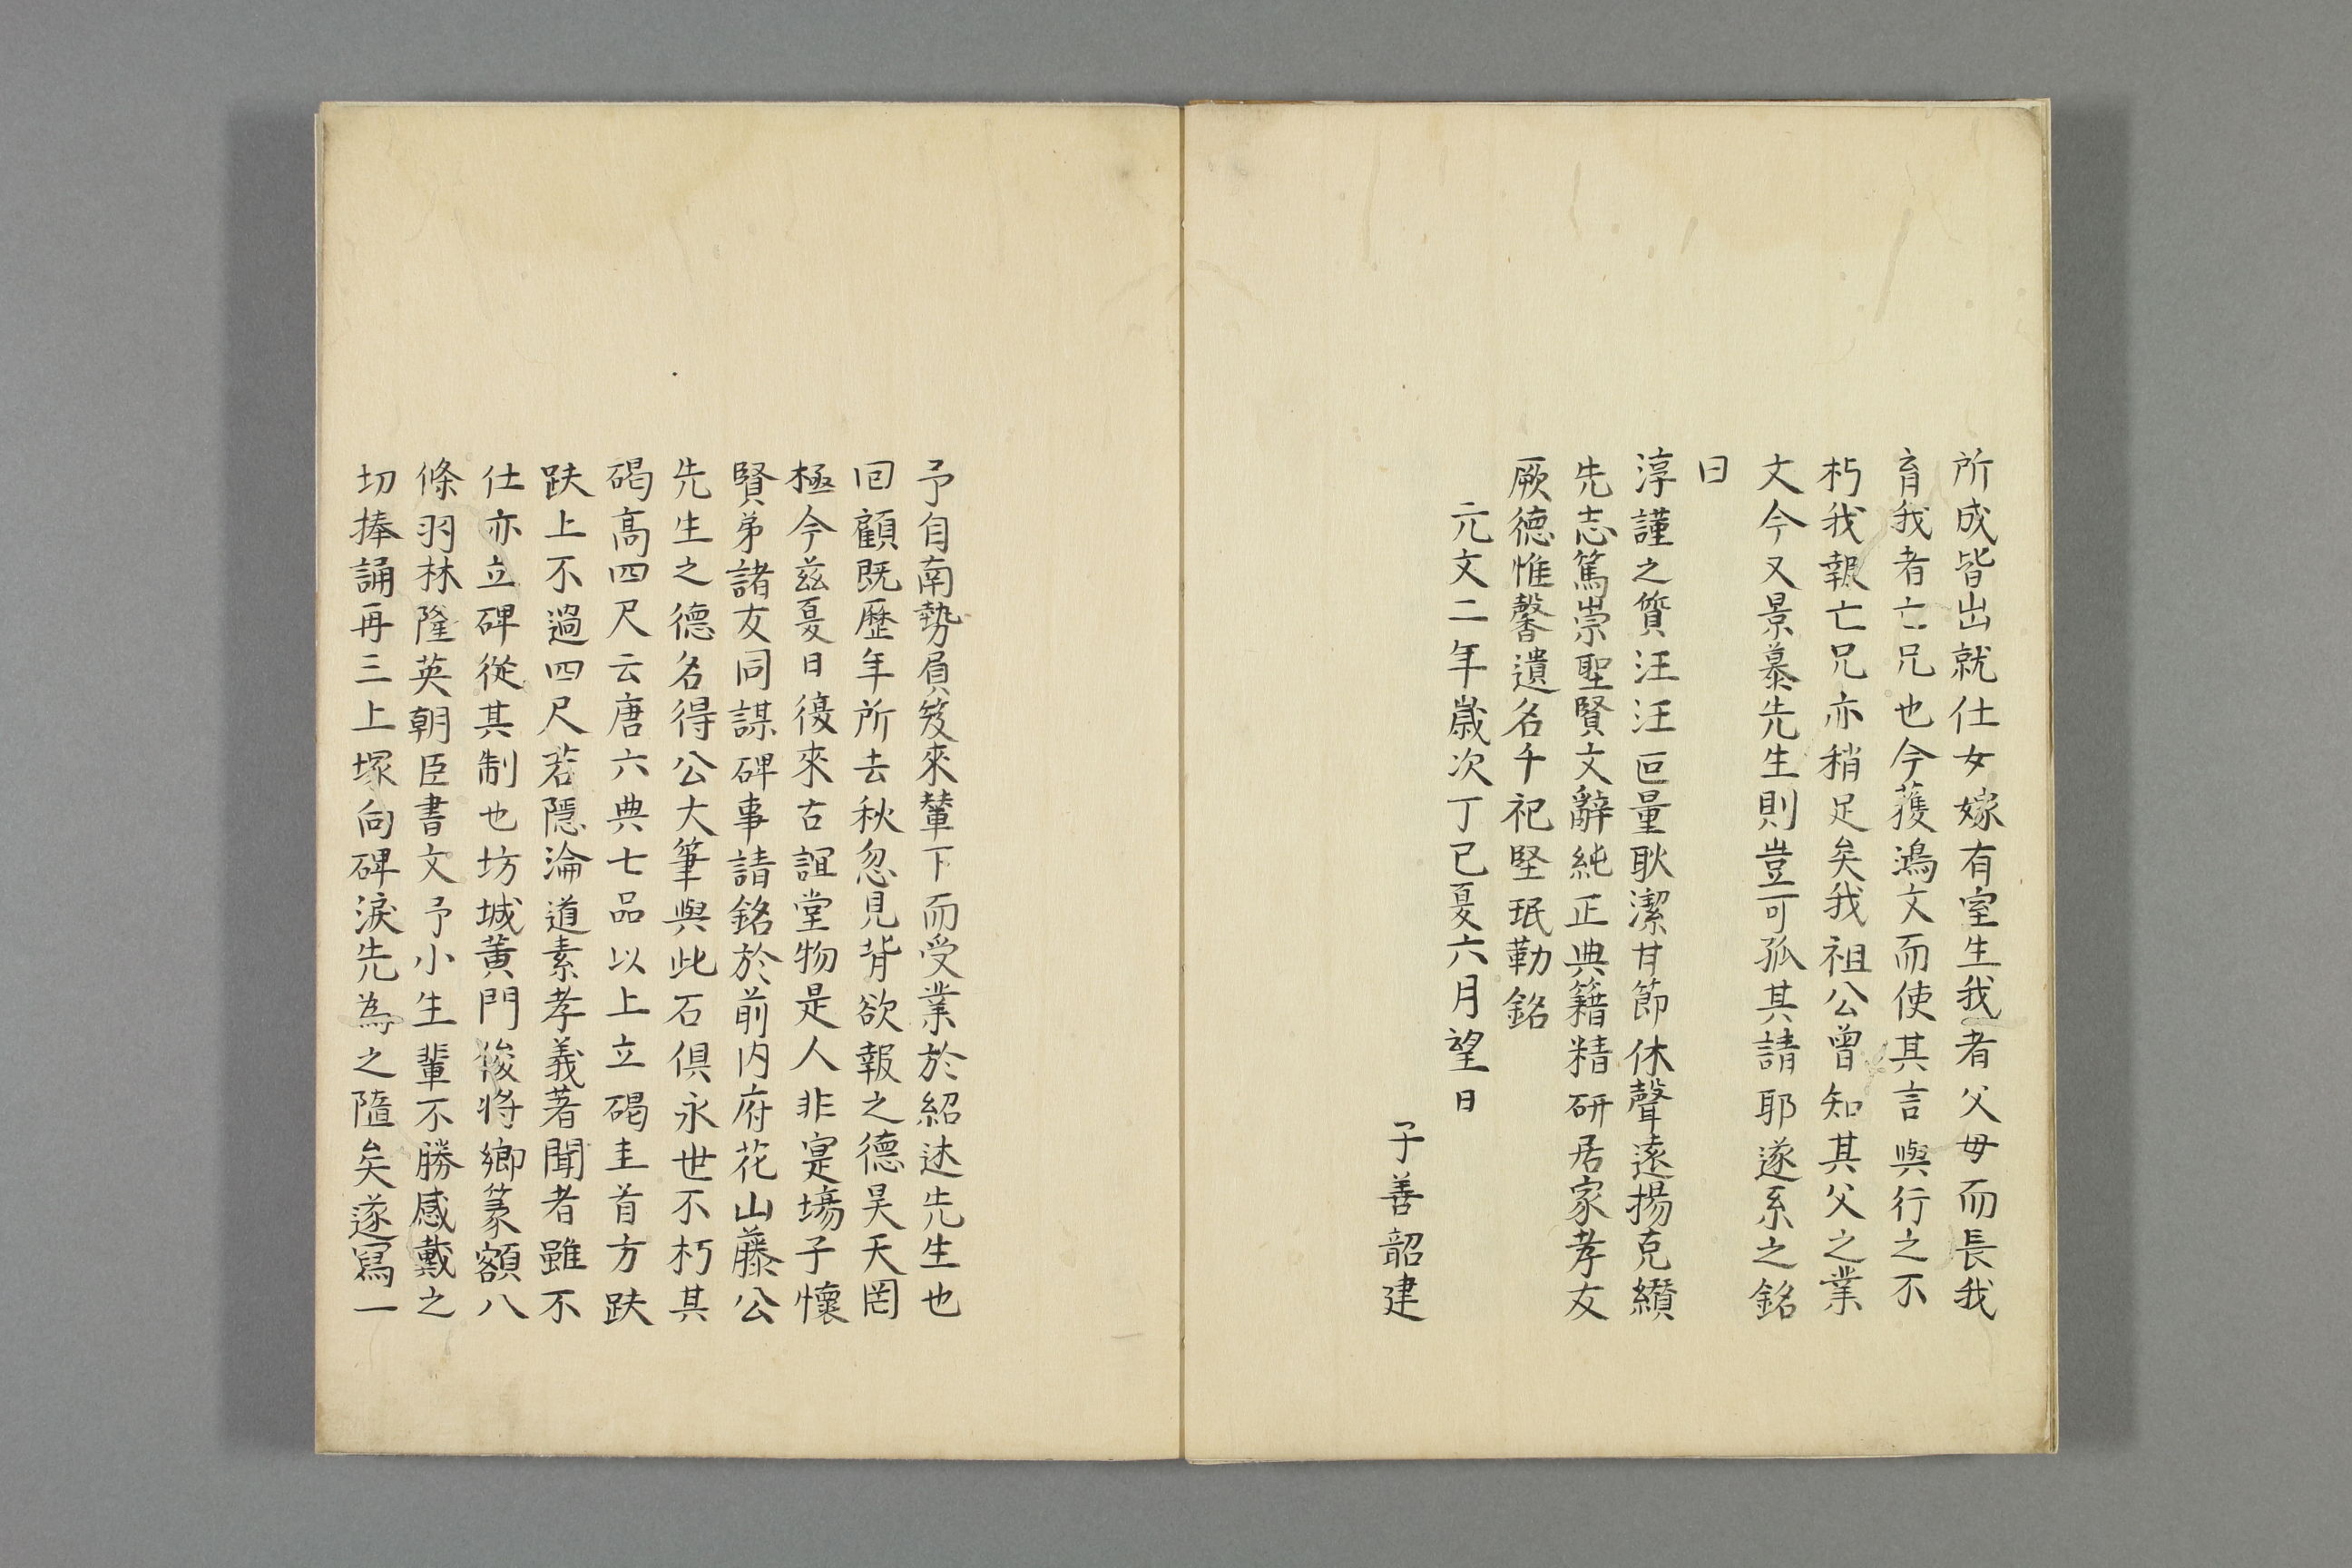 所成皆出就仕女嫁有室生我者父母而長我
育我者亡兄也今獲鴻文而使其言與行之不
朽我報亡兄亦稍足矣我祖公曾知其父之業
文今又景慕先生則豈可孤其請耶遂系之銘
曰
淳謹之質汪汪叵量耿潔甘節休聲遠揚克纘
先志篤崇聖賢文辭純正典籍精研居家孝友
厥德惟馨遺名千祀堅珉勒銘
元文二年歲次丁巳夏六月望日
子善韶建
予自南勢負笈來輦下而受業於紹述先生也
回顧既歷年所去秋忽見背欲報之德昊天罔
極今兹夏日復來古誼堂物是人非寔塲子懷
賢弟諸友同謀碑事請銘於前內府花山藤公
先生之德名得公大筆與此石俱永世不朽其
碣高四尺云唐六典七品以上立碣圭首方趺
趺上不過四尺若隱淪道素孝義著聞者雖不
仕亦立碑從其制也坊城黄門俊将卿篆額八
條羽林隆英朝臣書文予小生輩不勝感戴之
切捧誦再三上塚向碑淚先為之墮矣遂寫一